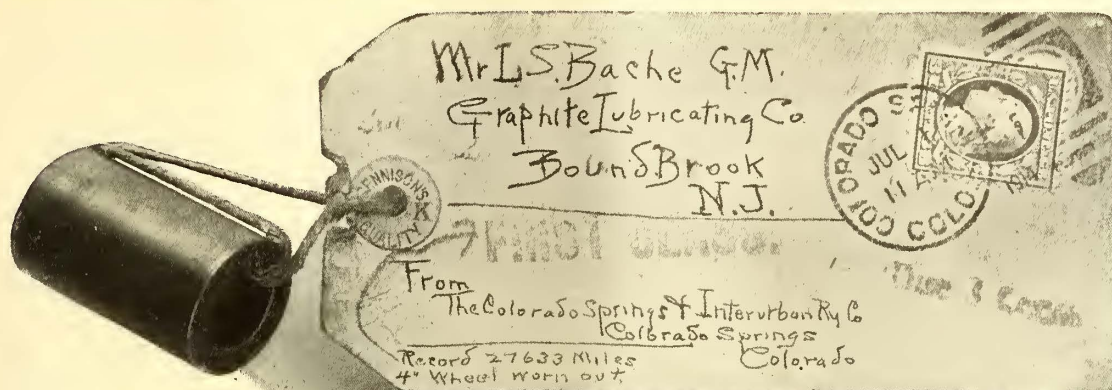 Mr L.S. Bache G.M.
Graphite Lubricating Co.
Bound Brook
N.J.
DENNISON'S
QUALITY
COLORADO
JUL
11
1914
COLO.
FIRST CLASS.
From
The Colorado Springs & Interurban Ry Co
Colorado Springs
Colorado
Record 27633 Miles
4" Wheel worn out.